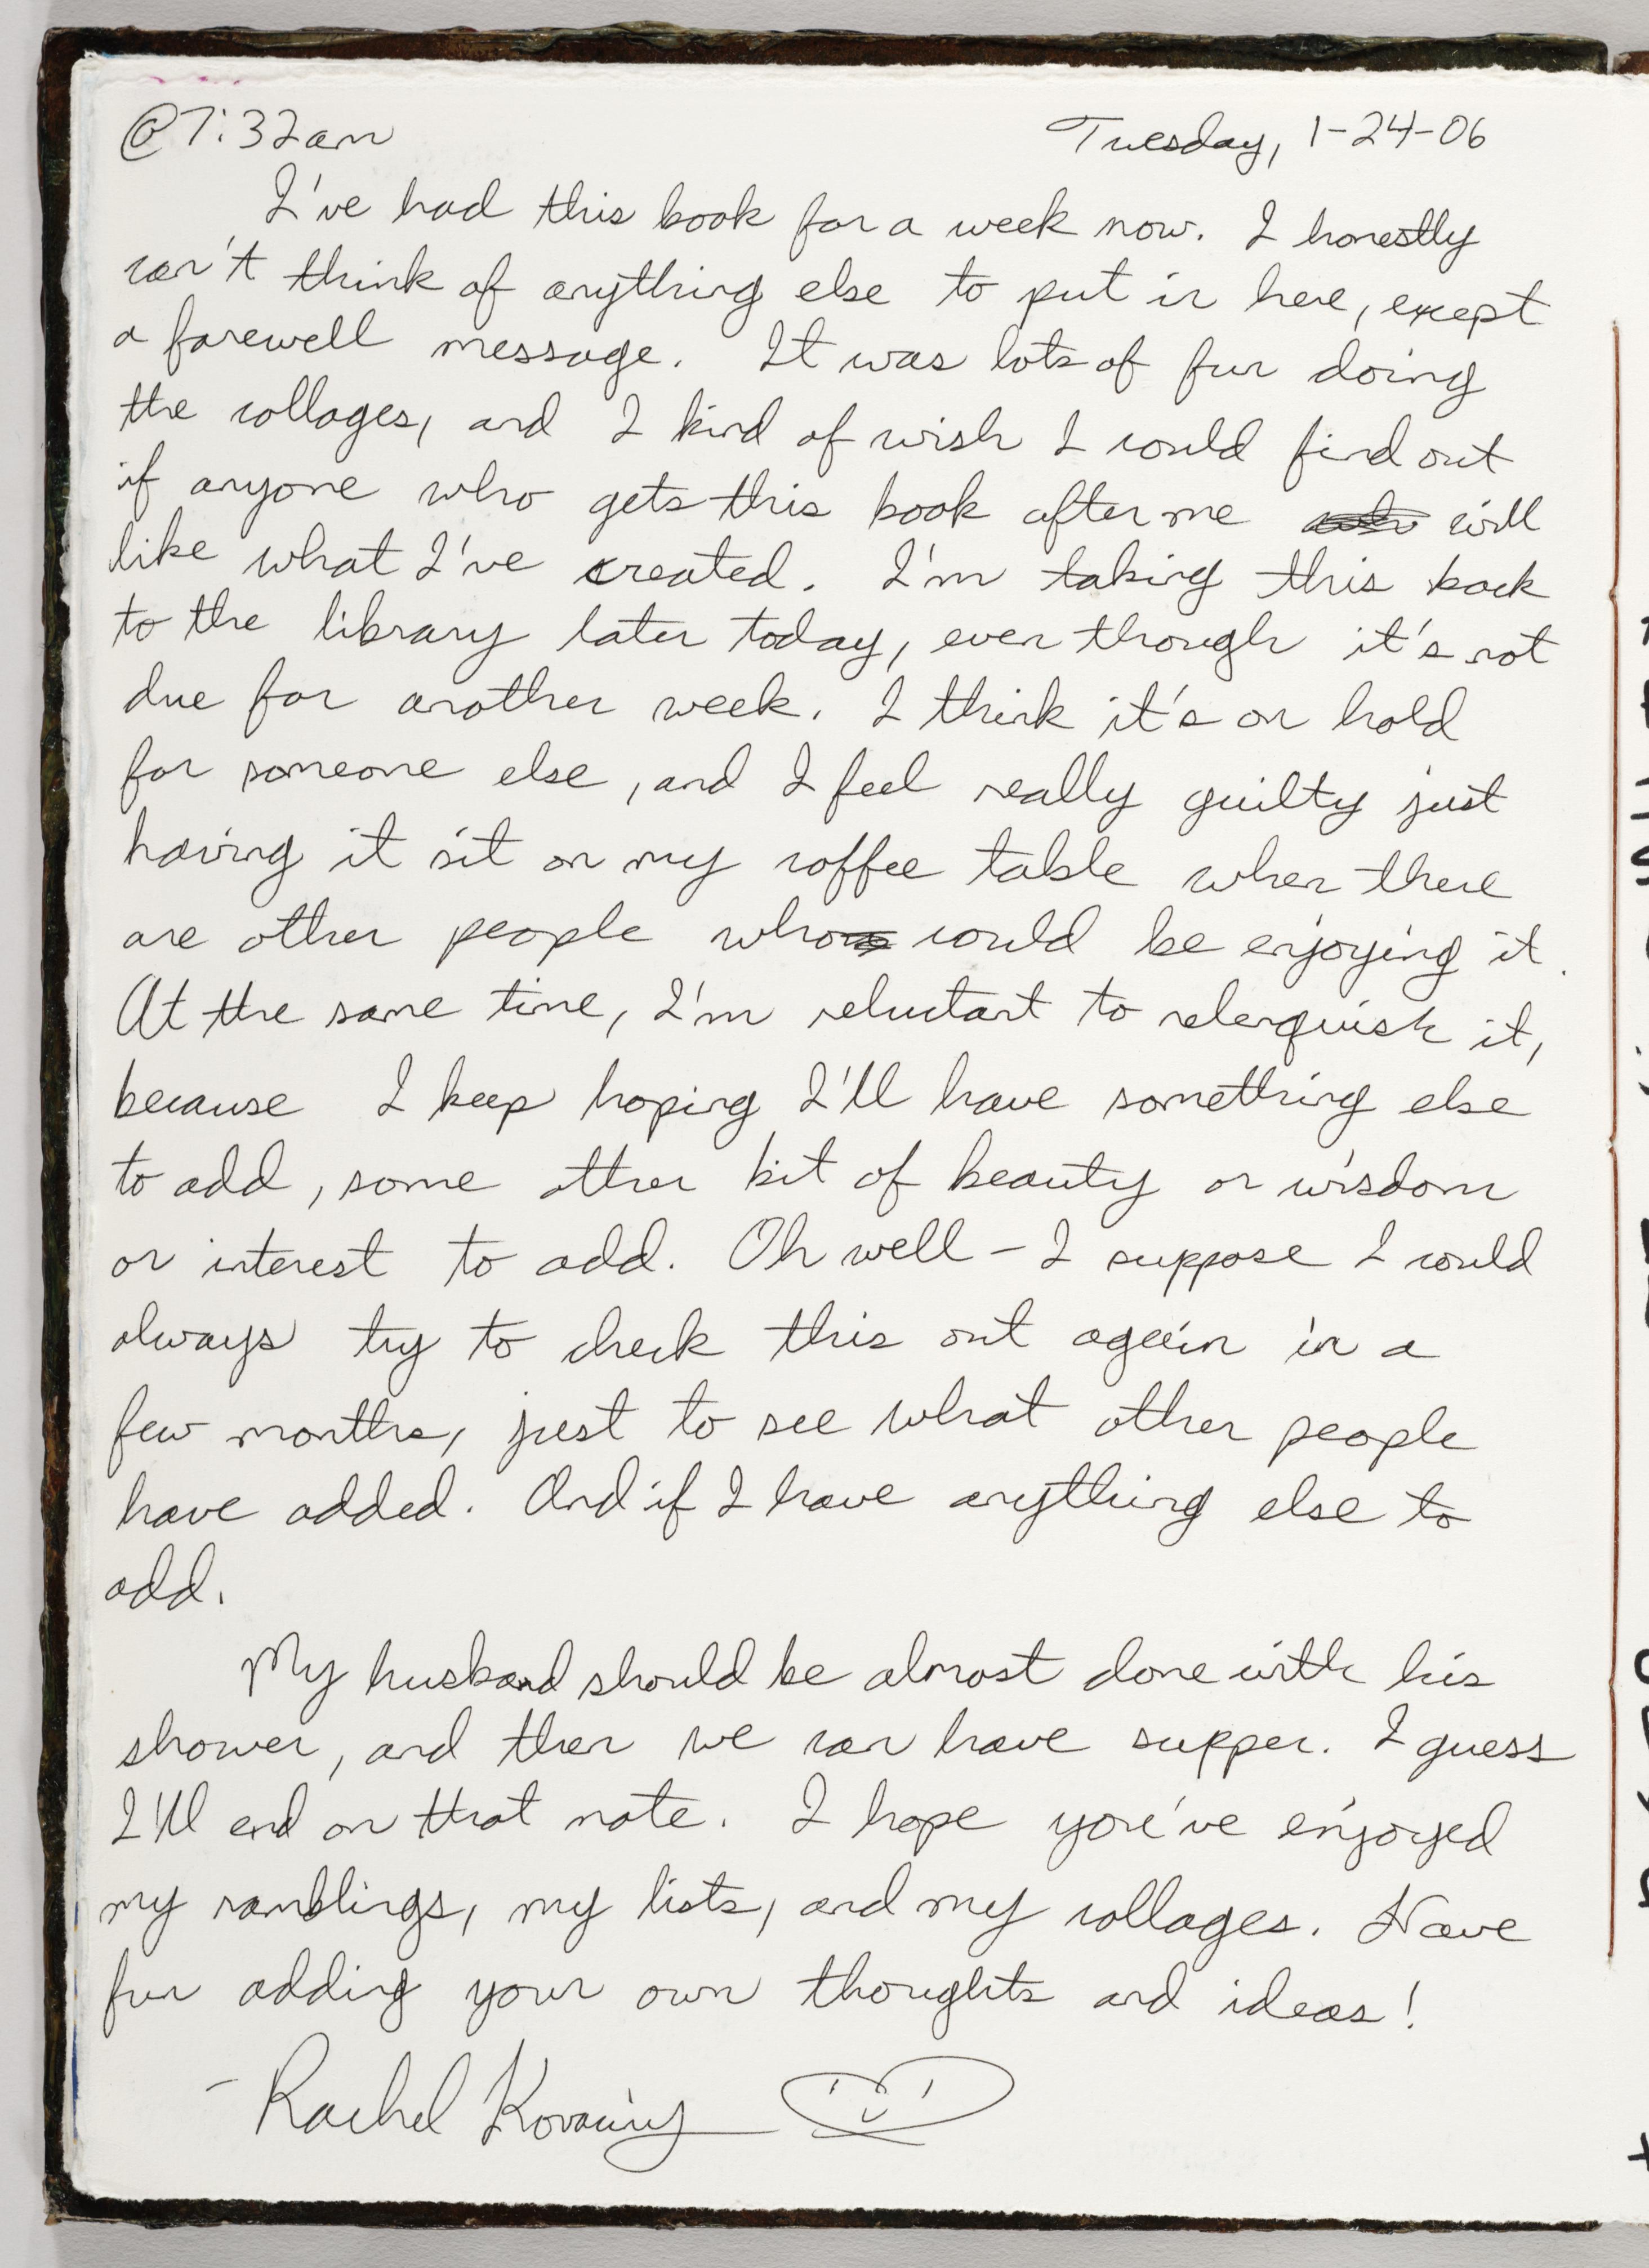 @7:32am Tuesday, 1-24-06
I've had this book for a week now. I honestly
can't think of anything else to put in here, exept
a farewell message. It was lots of fun doing
the collages, and I kind of wish I could find out
if anyone who gets this book after me will
like what I've created. I'm taking this back
to the library later today, even though it's not
due for another week. I think it's on hold
for someone else, and I feel really guilty just
having it sit on my coffee table when there
are other people who could be enjoying it.
At the same time, I'm reluctant to relenquish it,
because I keep hoping I'll have something else
to add, some other bit of beauty or wisdom
or interest to add. Oh well - I suppose I could
always try to check this out again in a
few months, just to see what other people
have added. And if I have anything else to
add.
My husband should be almost done with his
shower, and then we can have supper. I guess
I'll end on that note. I hope you've enjoyed
my ramblings, my lists, and my collages. Have
fun adding your own thoughts and ideas!
- Rachel